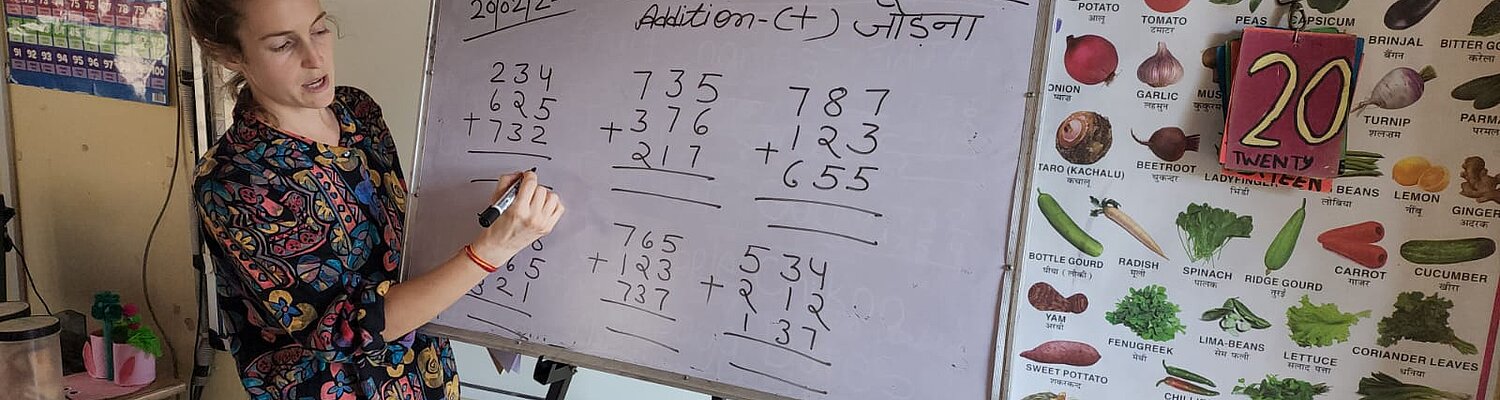 73 74 75 76 77 78 79
91 92 93 94 95 96 97 100
Addition - (+) जोड़ना
234
625
+732
735
+376
217
787
+123
655
65
321
765
+123
737
534
+212
137
POTATO
आलू
TOMATO
टमाटर
PEAS
CAPSICUM
BRINJAL
बैंगन
BITTER GO
करेला
ONION
प्याज
GARLIC
लहसुन
MUS
TURNIP
शलजम
PARMA
परमल
20
TWENTY
TEEN
TARO (KACHALU)
कचालू
BEETROOT
चुकन्दर
LADYFINGER
भिंडी
BEANS
लोबिया
LEMON
नींबू
GINGER
अदरक
BOTTLE GOURD
घीया (लौकी)
RADISH
मूली
SPINACH
पालक
RIDGE GOURD
तुरई
CARROT
गाजर
CUCUMBER
खीरा
YAM
अरबी
FENUGREEK
मेथी
LIMA-BEANS
सेम फली
LETTUCE
सलाद पत्ता
CORIANDER LEAVES
धनिया
SWEET POTATO
शकरकन्द